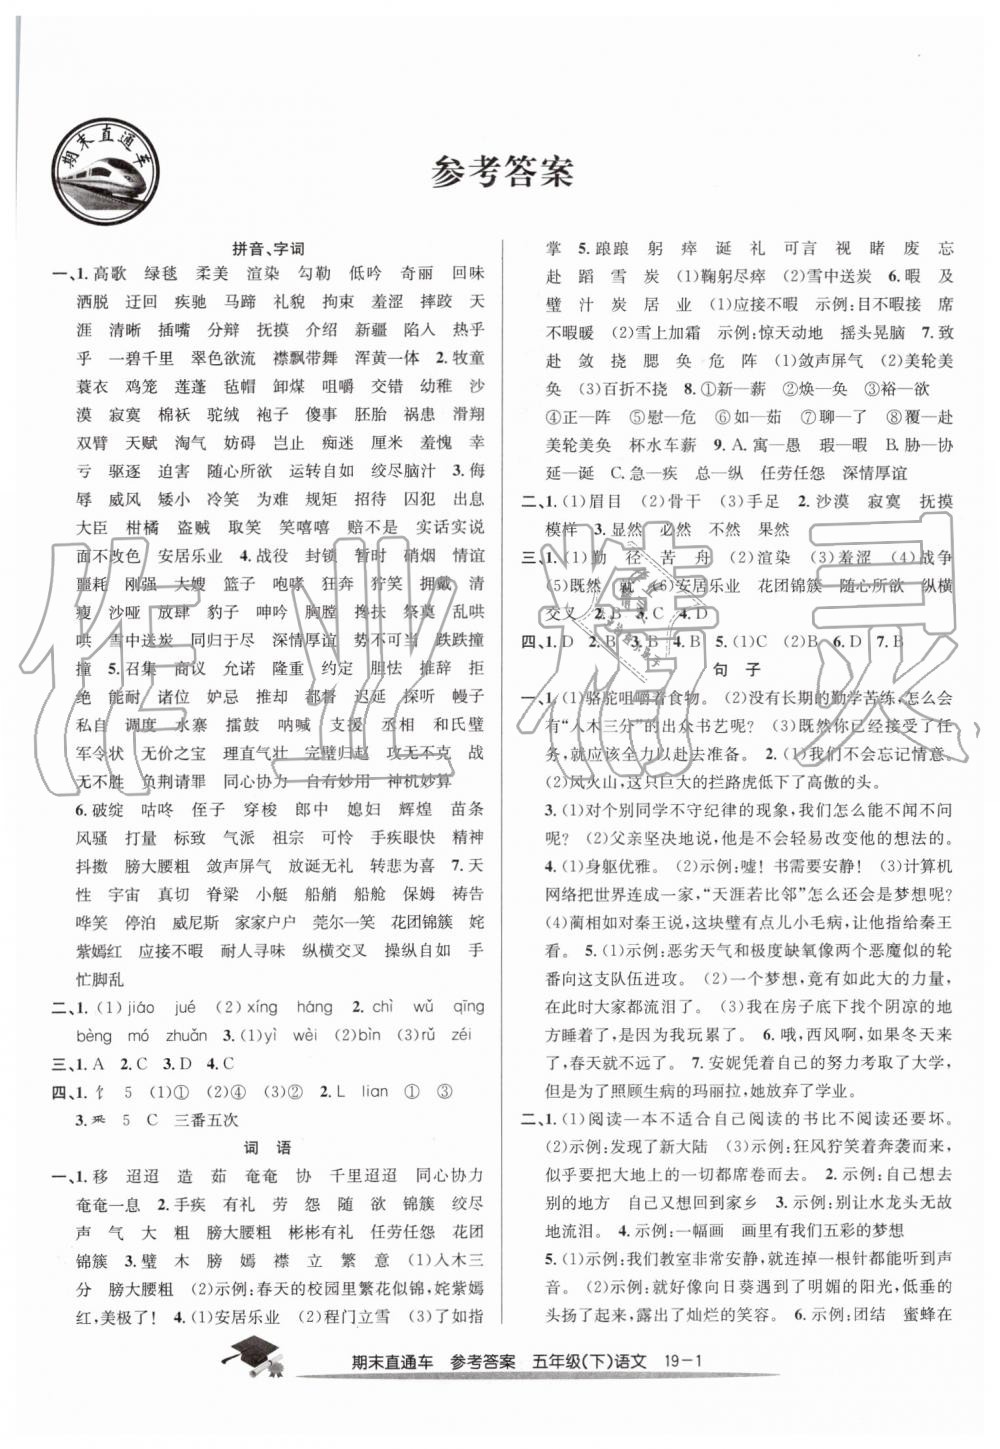 期末直通车
参考答案
拼音、字词
一、1.高歌 绿毯 柔美 渲染 勾勒 低吟 奇丽 回味
洒脱 迂回 疾驰 马蹄 礼貌 拘束 羞涩 摔跤 天
涯 清晰 插嘴 分辩 抚摸 介绍 新疆 陷入 热乎
乎 一碧千里 翠色欲流 襟飘带舞 浑黄一体 2.牧童
蓑衣 鸡笼 莲蓬 毡帽 卸煤 咀嚼 交错 幼稚 沙
漠 寂寞 棉袄 驼绒 袍子 傻事 胚胎 祸患 滑翔
双臂 天赋 淘气 妨碍 岂止 痴迷 厘米 羞愧 幸
亏 驱逐 迫害 随心所欲 运转自如 绞尽脑汁 3.侮
辱 威风 矮小 冷笑 为难 规矩 招待 囚犯 出息
大臣 柑橘 盗贼 取笑 笑嘻嘻 赔不是 实话实说
面不改色 安居乐业 4.战役 封锁 暂时 硝烟 情谊
噩耗 刚强 大嫂 篮子 咆哮 狂奔 狞笑 拥戴 清
瘦 沙哑 放肆 豹子 呻吟 胸膛 搀扶 祭奠 乱哄
哄 雪中送炭 同归于尽 深情厚谊 势不可当 跌跌撞
撞 5.召集 商议 允诺 隆重 约定 胆怯 推辞 拒
绝 能耐 诸位 妒忌 推却 都督 迟延 探听 幔子
私自 调度 水寨 擂鼓 呐喊 支援 丞相 和氏璧
军令状 无价之宝 理直气壮 完璧归赵 攻无不克 战
无不胜 负荆请罪 同心协力 自有妙用 神机妙算
6.破绽 咕咚 侄子 穿梭 郎中 媳妇 辉煌 苗条
风骚 打量 标致 气派 祖宗 可怜 手疾眼快 精神
抖擞 膀大腰粗 敛声屏气 放诞无礼 转悲为喜 7.天
性 宇宙 真切 脊梁 小艇 船艄 船舱 保姆 祷告
哗笑 停泊 威尼斯 家家户户 莞尔一笑 花团锦簇 姹
紫嫣红 应接不暇 耐人寻味 纵横交叉 操纵自如 手
忙脚乱
二、1.(1)jiáo jué (2)xíng háng 2.chì wǔ qīng
bèng mó zhuǎn 3.(1)yì wèi (2)bìn (3)rǔ zéi
三、1.A 2.C 3.D 4.C
四、1.饣 5 (1)① (2)④ (3)② 2.L lian ① ③
3. 5 C 三番五次
词 语
一、1.移 迢迢 造 茹 奄奄 协 千里迢迢 同心协力
奄奄一息 2.手疾 有礼 劳 怨 随 欲 锦簇 绞尽
声 气 大 粗 膀大腰粗 彬彬有礼 任劳任怨 花团
锦簇 3.璧 木 膀 嫣 襟 立 繁 意 (1)入木三
分 膀大腰粗 (2)示例:春天的校园里繁花似锦,姹紫嫣
红,美极了! 4.(1)安居乐业 (2)程门立雪 (3)了如指
掌 5.踉踉 躬 瘁 诞 礼 可言 视 睹 废 忘
赴 蹈 雪 炭 (1)鞠躬尽瘁 (2)雪中送炭 6.暇 及
璧 汁 炭 居 业 (1)应接不暇 示例:目不暇接 席
不暇暖 (2)雪上加霜 示例:惊天动地 摇头晃脑 7.致
赴 敛 挠 腮 奂 危 阵 (1)敛声屏气 (2)美轮美
奂 (3)百折不挠 8.①新—薪 ②焕—奂 ③裕—欲
④正—阵 ⑤慰—危 ⑥如—茹 ⑦聊—了 ⑧覆—赴
美轮美奂 杯水车薪 9.A.寓—愚 瑕—暇 B.胁—协
延—诞 C.急—疾 总—纵 任劳任怨 深情厚谊
二、1.(1)眉目 (2)骨干 (3)手足 2.沙漠 寂寞 抚摸
模样 3.显然 必然 不然 果然
三、1.(1)勤 径 苦 舟 (2)渲染 (3)羞涩 (4)战争
(5)既然 就 (6)安居乐业 花团锦簇 随心所欲 纵横
交叉 2.B 3.C 4.D
四、1.D 2.B 3.B 4.B 5.(1)C (2)B 6.D 7.B
句 子
一、1.(1)骆驼咀嚼着食物。 (2)没有长期的勤学苦练,怎么会
有“入木三分”的出众书艺呢? (3)既然你已经接受了任
务,就应该全力以赴去准备。 2.(1)我们不会忘记情意。
(2)风火山,这只巨大的拦路虎低下了高傲的头。
3.(1)对个别同学不守纪律的现象,我们怎么能不闻不问
呢? (2)父亲坚决地说,他是不会轻易改变他的想法的。
4.(1)身躯优雅。 (2)示例:嘘! 书需要安静! (3)计算机
网络把世界连成一家,“天涯若比邻”怎么还会是梦想呢?
(4)蔺相如对秦王说,这块璧有点儿小毛病,让他指给秦王
看。 5.(1)示例:恶劣天气和极度缺氧像两个恶魔似的轮
番向这支队伍进攻。 (2)一个梦想,竟有如此大的力量,
在此时大家都流泪了。 (3)我在房子底下找个阴凉的地
方睡着了,因为我玩累了。 6.哦,西风啊,如果冬天来
了,春天就不远了。 7.安妮凭着自己的努力考取了大学,
但是为了照顾生病的玛丽拉,她放弃了学业。
二、1.(1)阅读一本不适合自己阅读的书比不阅读还要坏。
(2)示例:发现了新大陆 (3)示例:狂风狞笑着奔袭而来,
似乎要把大地上的一切都席卷而去。 2.示例:自己去了
别的地方 自己又回到了家乡 3.示例:别让水龙头无故
地流泪。 4.示例:一幅画 画里有我们五彩的梦想
5.(1)示例:我们教室非常安静,就连掉一根针都能听到声
音。 (2)示例:我们好像向日葵遇到了明媚的阳光,低垂的
头扬了起来,露出了灿烂的笑容。 6.示例:团结 蜜蜂在
期末直通车 参考答案 五年级(下)语文 19－1
作业精灵